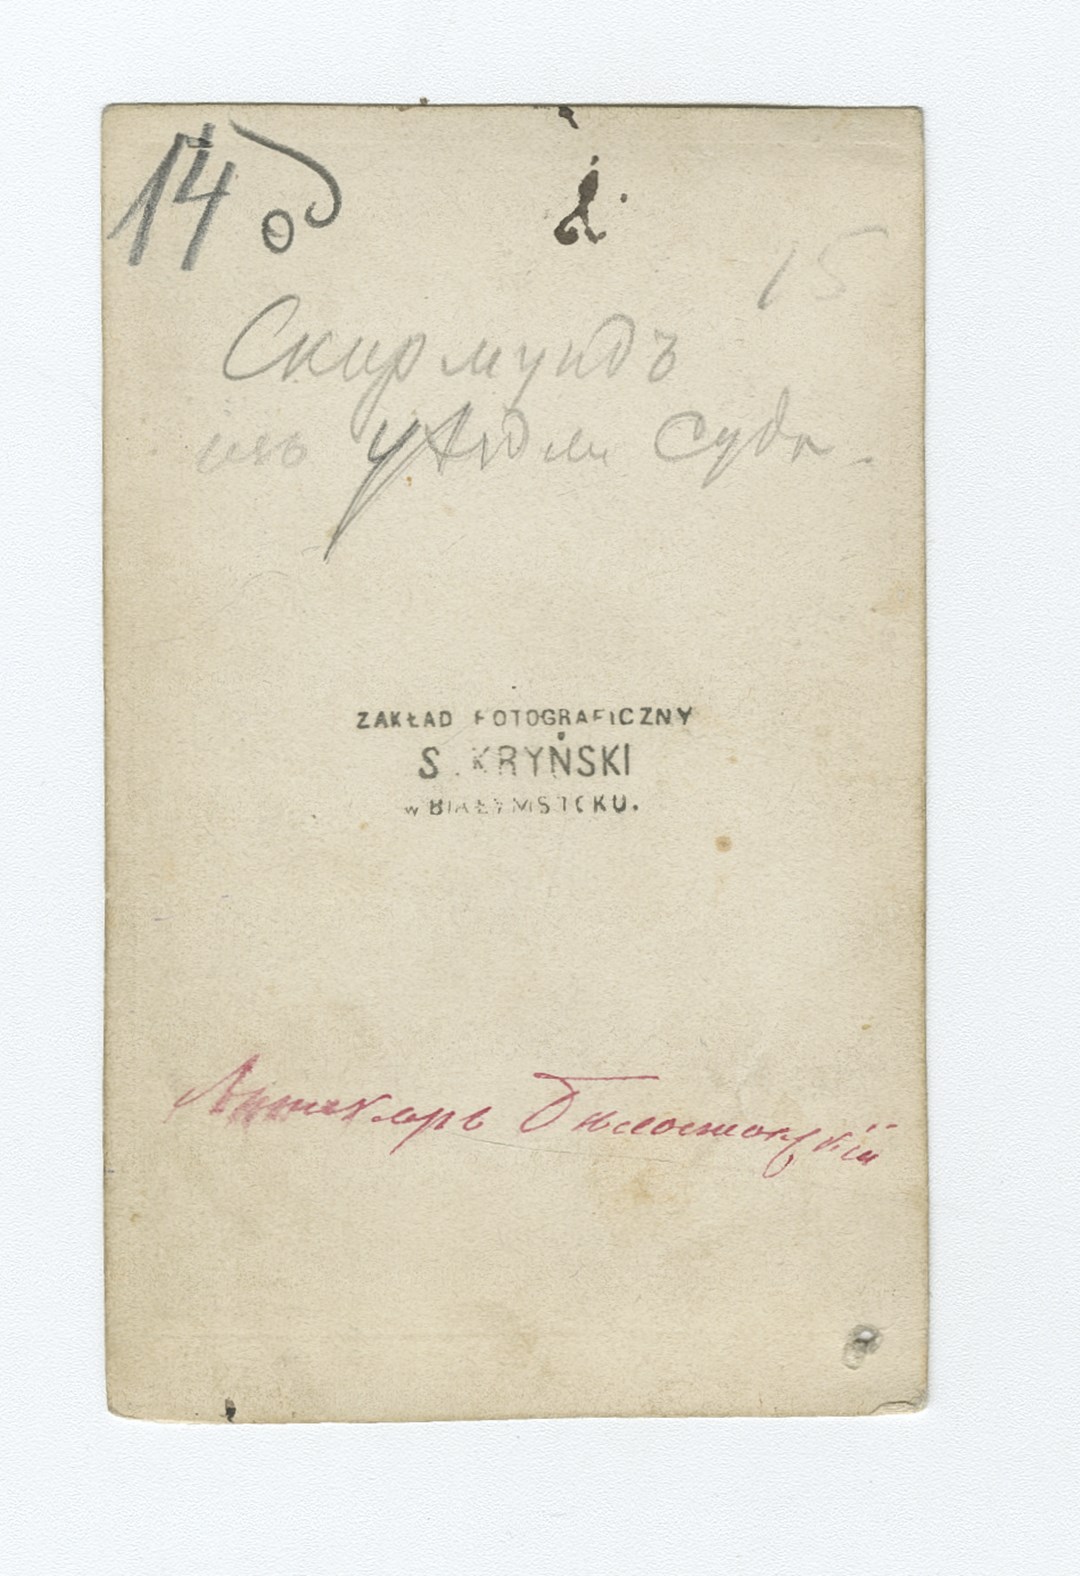 14 об
15
Скирмундъ
суда.
ZAKŁAD FOTOGRAFICZNY
S. KRYŃSKI
w BIAŁYMSTOKU.
Аптекарь Бѣлостокскій